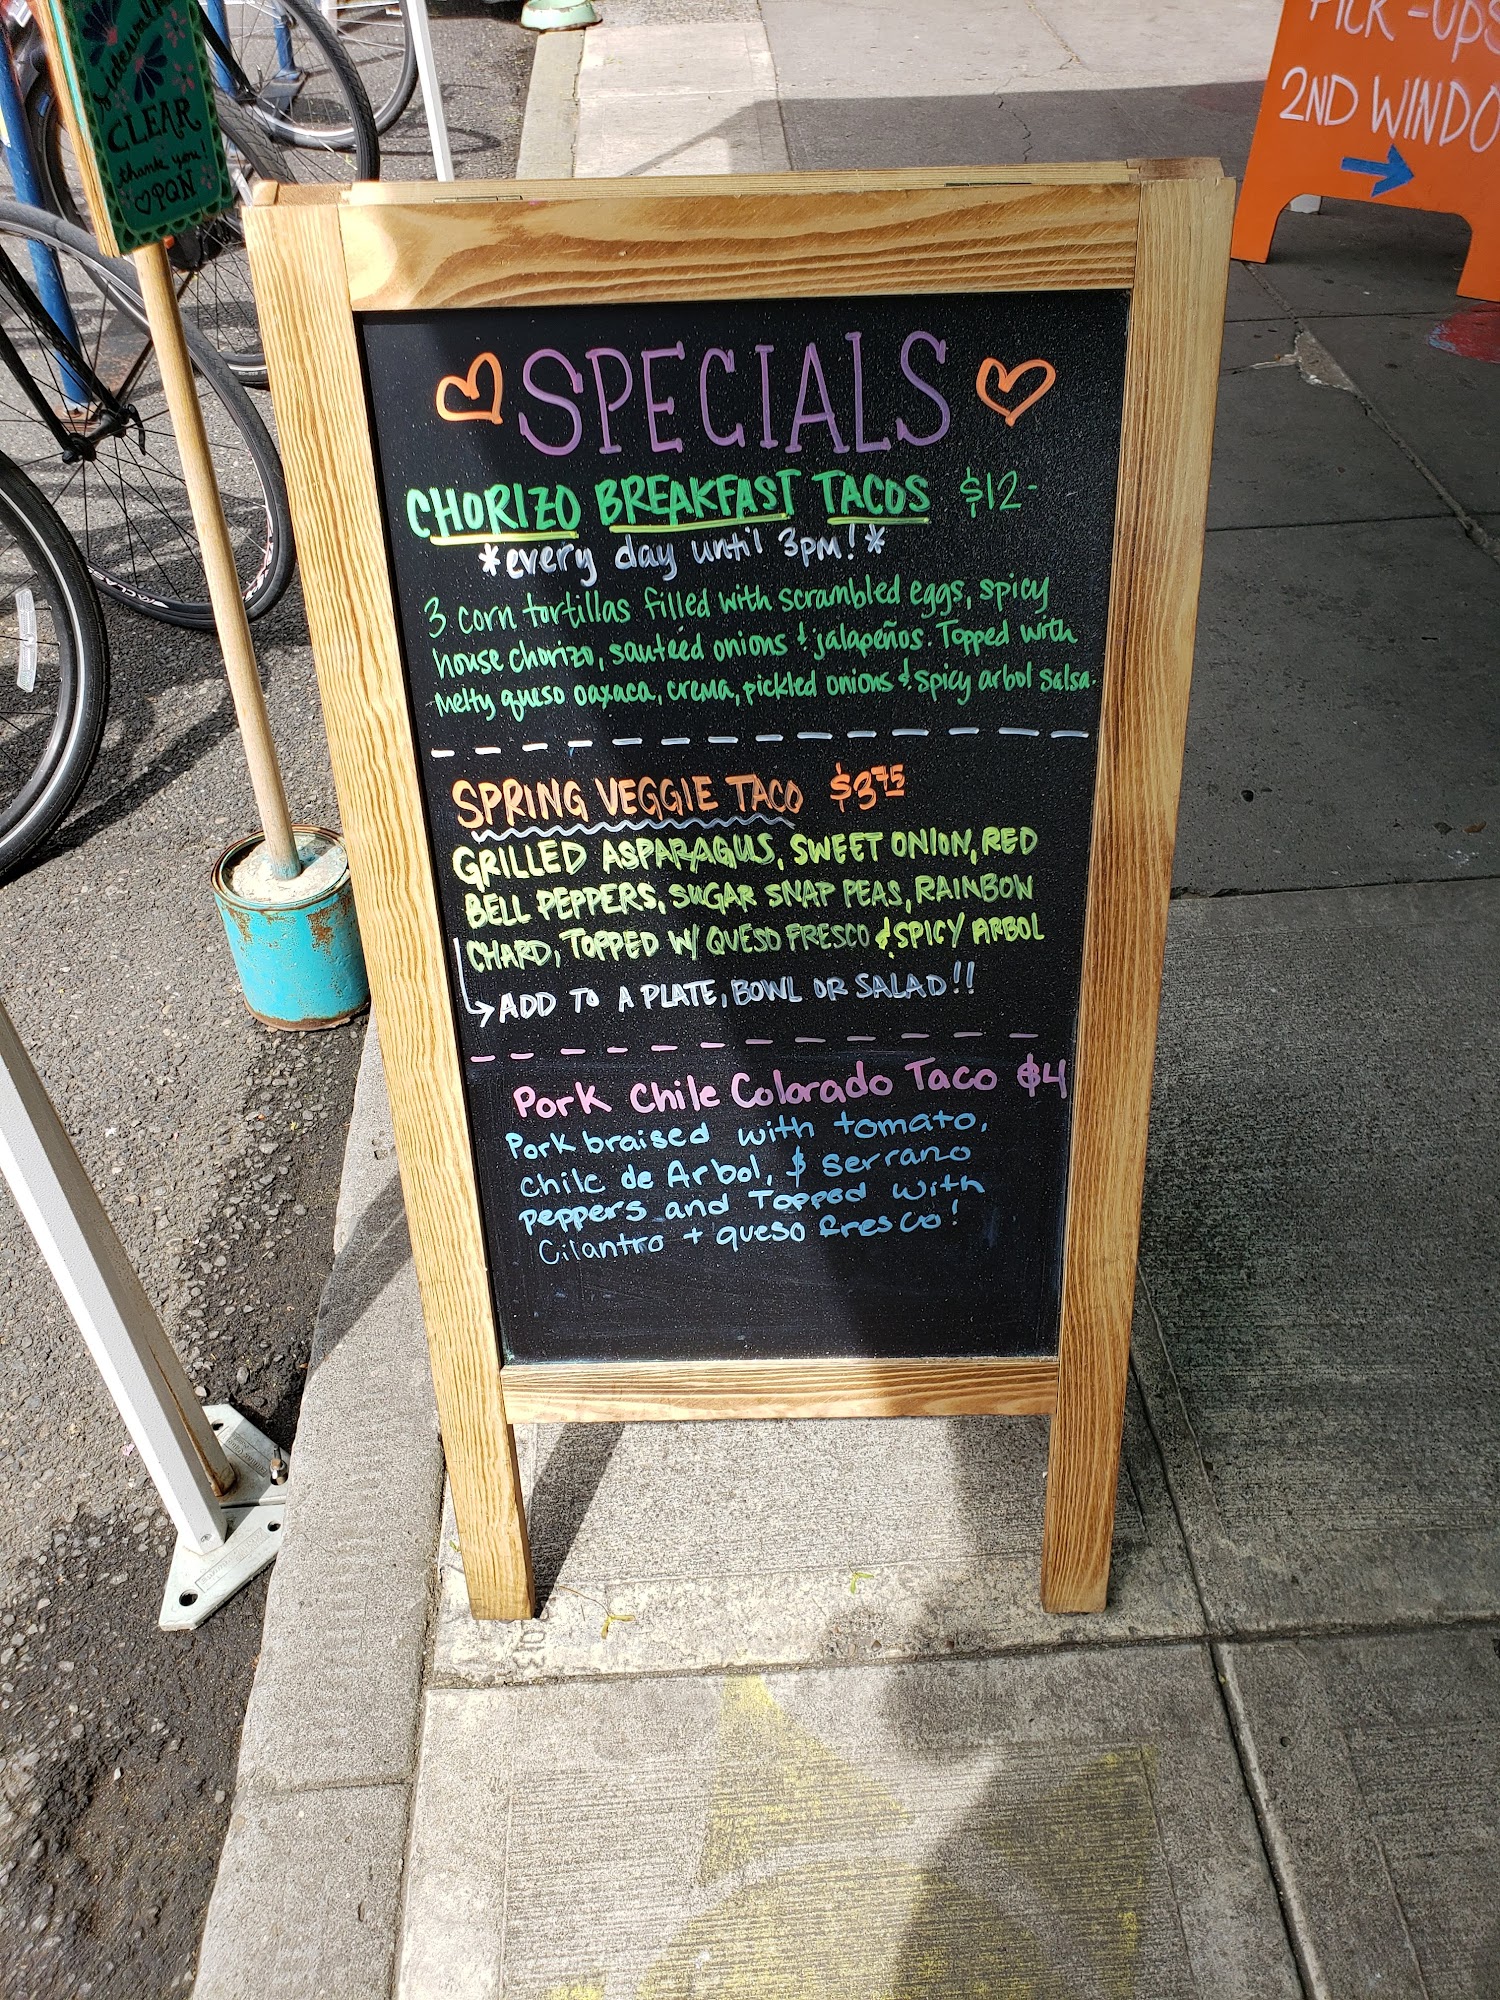 Sidewalk
CLEAR
thank you!
♡PQN
PICK-UPS
2ND WINDO
SPECIALS
CHORIZO BREAKFAST TACOS $12-
*every day until 3PM!*
3 corn tortillas filled with scrambled eggs, spicy
house chorizo, sauteéd onions & jalapeños. Topped with
melty queso oaxaca, crema, pickled onions & spicy arbol salsa.
SPRING VEGGIE TACO $3.75
GRILLED ASPARAGUS, SWEET ONION, RED
BELL PEPPERS, SUGAR SNAP PEAS, RAINBOW
CHARD, TOPPED W/ QUESO FRESCO & SPICY ARBOL
→ ADD TO A PLATE, BOWL OR SALAD!!
Pork Chile Colorado Taco $4
Pork braised with tomato,
chile de Arbol, & serrano
peppers and Topped with
Cilantro + queso fresco!